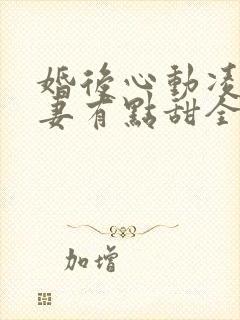 婚後心動凌
妻有點甜全
加增